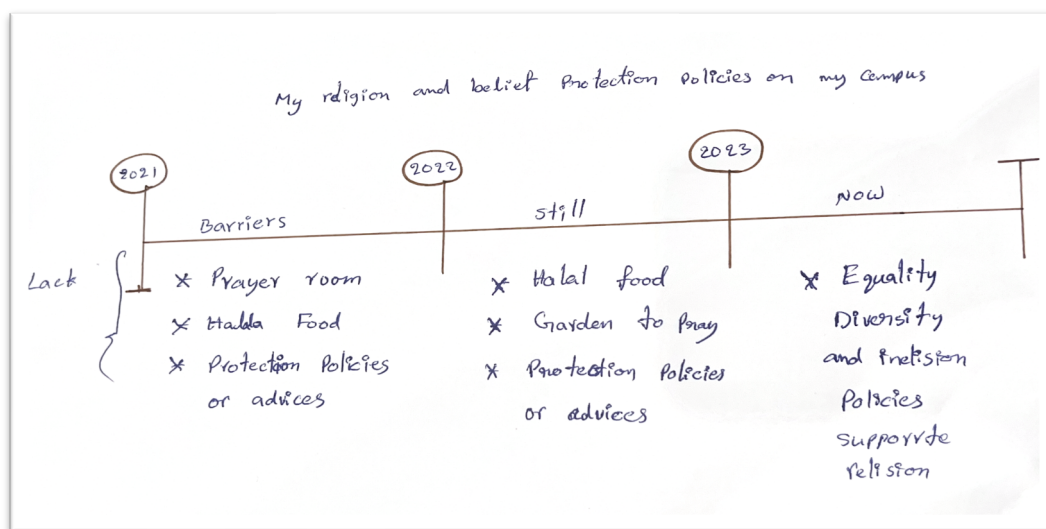 My religion and belief Protection Policies on my Campus
2021
2022
2023
Barriers
still
NOW
Lack
* Prayer room
* Halala Food
* Protection Policies
or advices
* Halal food
* Garden to Pray
* Protection Policies
or advices
* Equality
Diversity
and Inclision
Policies
supporrte
relision